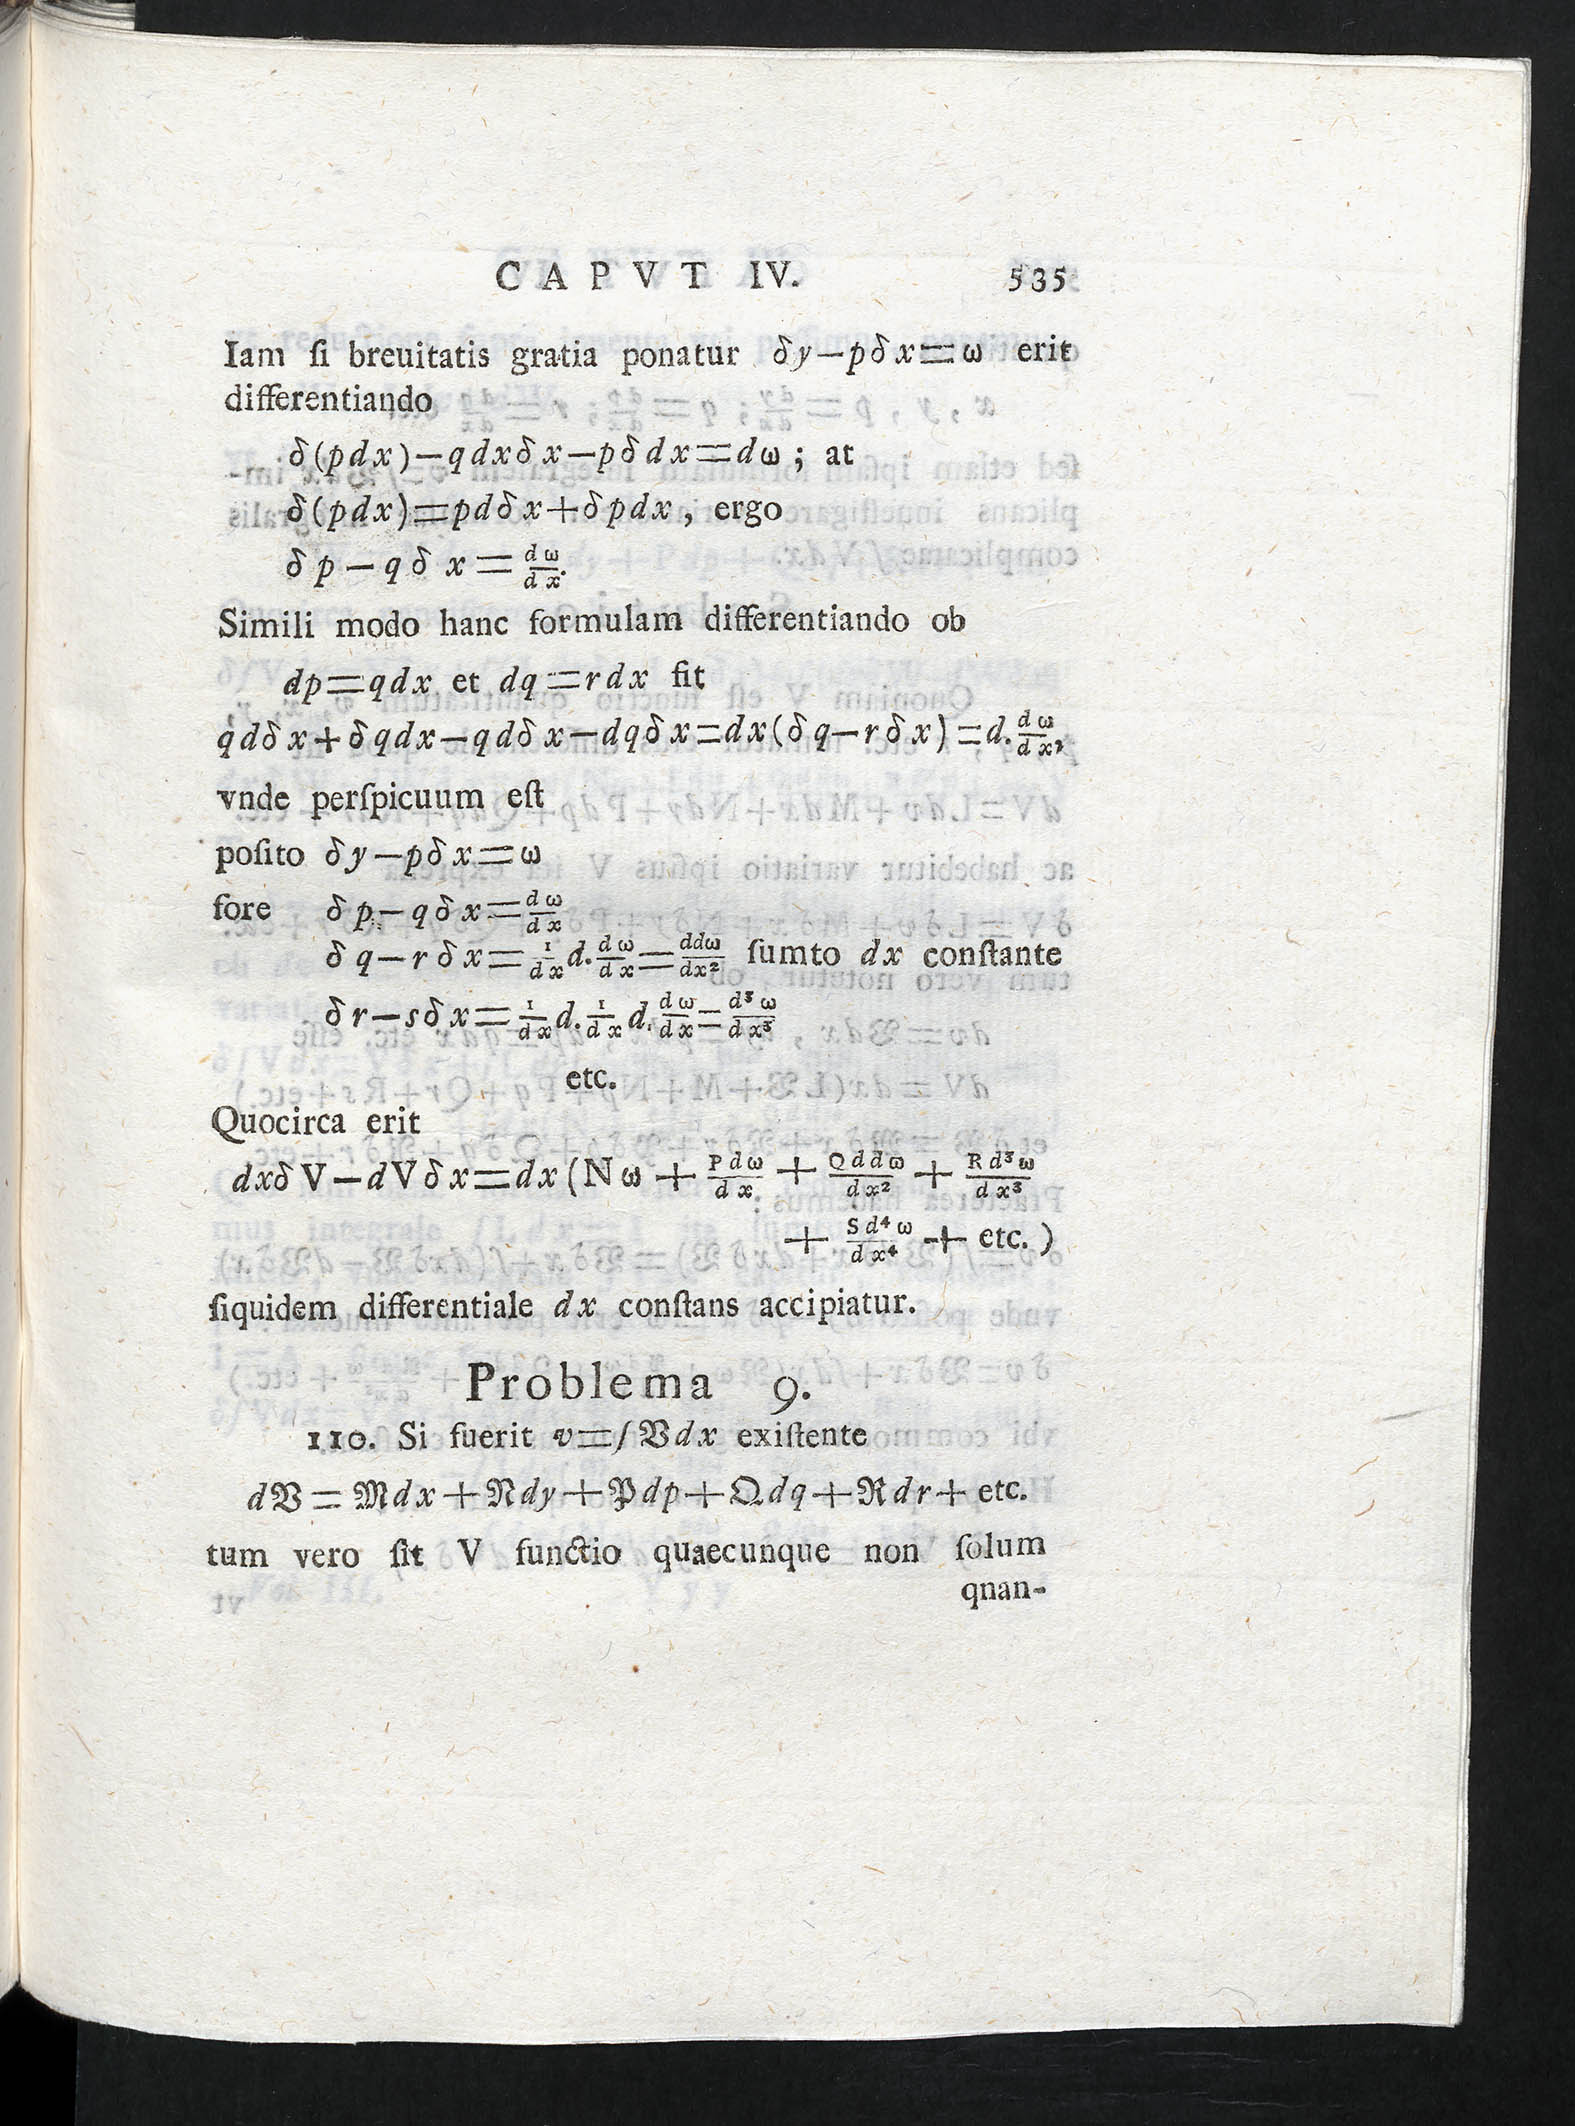 CAPVT IV. 535
Iam ſi breuitatis gratia ponatur δy−pδx=ω erit
differentiando
δ(pdx)−qdxδx−pδdx=dω; at
δ(pdx)=pdδx+δpdx, ergo
δp−qδx=dω/dx.
Simili modo hanc formulam differentiando ob
dp=qdx et dq=rdx fit
qdδx+δqdx−qdδx−dqδx=dx(δq−rδx)=d.dω/dx,
vnde perſpicuum eſt
poſito δy−pδx=ω
fore δp−qδx=dω/dx
δq−rδx=1/dx d.dω/dx=ddω/dx² ſumto dx conſtante
δr−sδx=1/dx d.1/dx d.dω/dx=d³ω/dx³
etc.
Quocirca erit
dxδV−dVδx=dx(Nω+Pdω/dx+Qddω/dx²+Rd³ω/dx³
+Sd⁴ω/dx⁴+etc.)
ſiquidem differentiale dx conſtans accipiatur.
Problema 9.
110. Si fuerit v=∫𝔙dx exiſtente
d𝔙=𝔐dx+𝔑dy+𝔓dp+𝔔dq+ℜdr+etc.
tum vero ſit V functio quaecunque non ſolum
qnan-